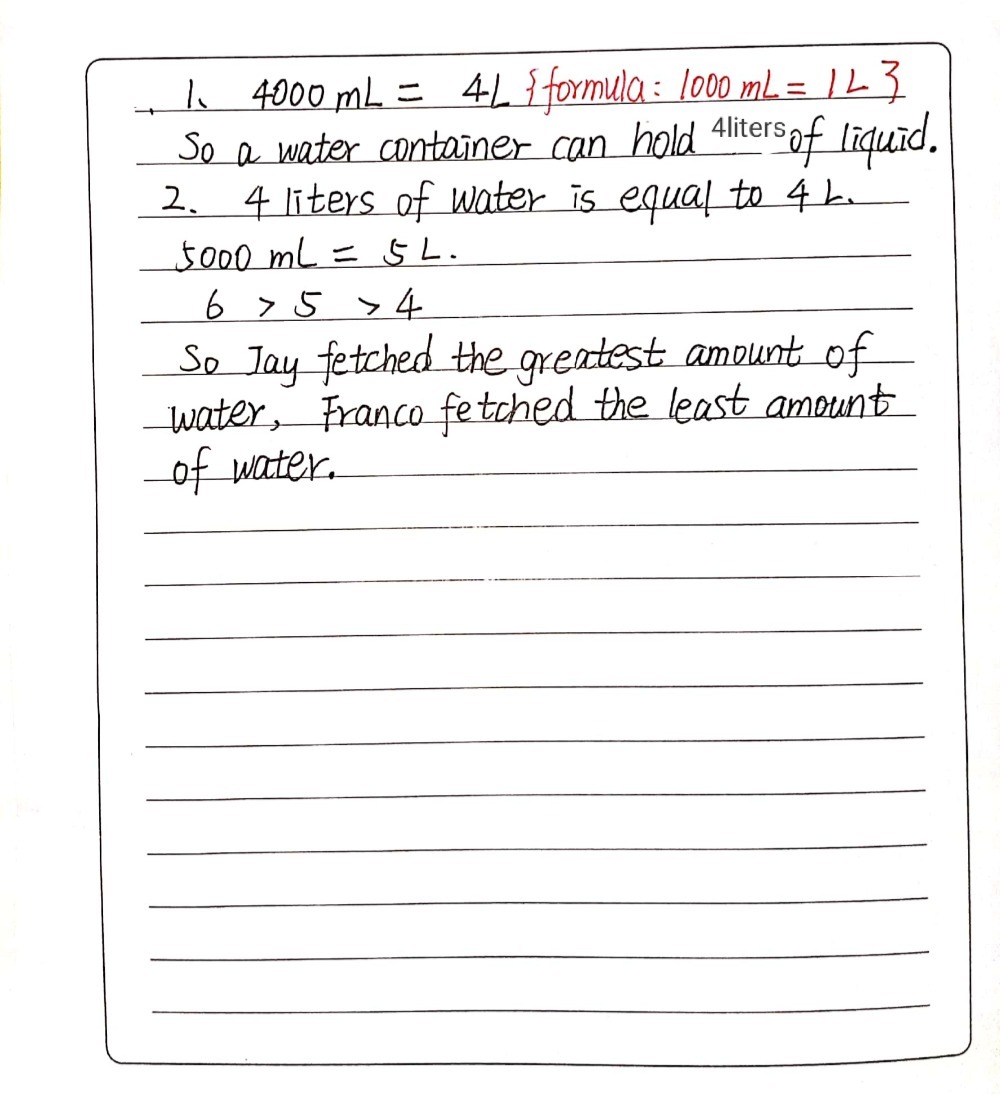 1、 4000 mL = 4L {formula: 1000 mL = 1L}
So a water container can hold 4liters of liquid.
2. 4 liters of water is equal to 4 L.
5000 mL = 5 L.
6 > 5 > 4
So Jay fetched the greatest amount of
water, Franco fetched the least amount
of water.